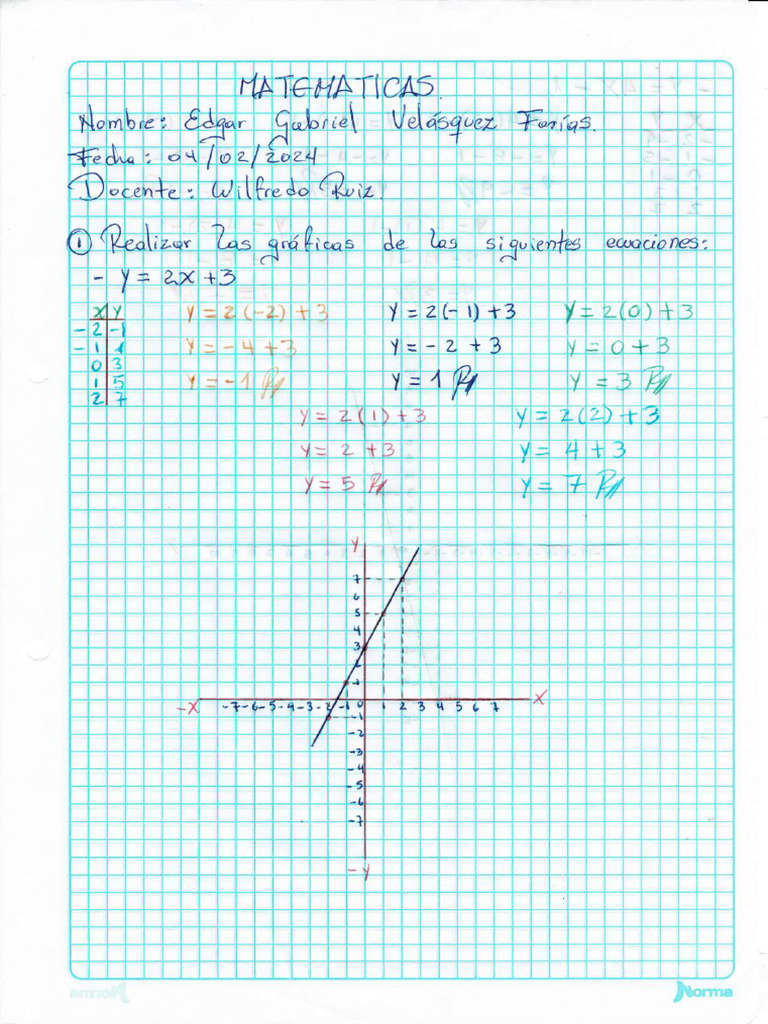 MATEMATICAS.
Nombre: Edgar Gabriel Velásquez Farías.
Fecha: 04/02/2024
Docente: Wilfredo Ruiz.
① Realizar las gráficas de las siguientes ecuaciones:
- y = 2x + 3
X Y
-2 -1
-1 1
0 3
1 5
2 7
y = 2(-2) + 3
y = -4 + 3
y = -1 R//
y = 2(-1) + 3
y = -2 + 3
y = 1 R//
y = 2(0) + 3
y = 0 + 3
y = 3 R//
y = 2(1) + 3
y = 2 + 3
y = 5 R//
y = 2(2) + 3
y = 4 + 3
y = 7 R//
Y
7
6
5
4
3
2
1
-X -7 -6 -5 -4 -3 -2 -1 0 1 2 3 4 5 6 7 X
-1
-2
-3
-4
-5
-6
-7
-Y
Norma